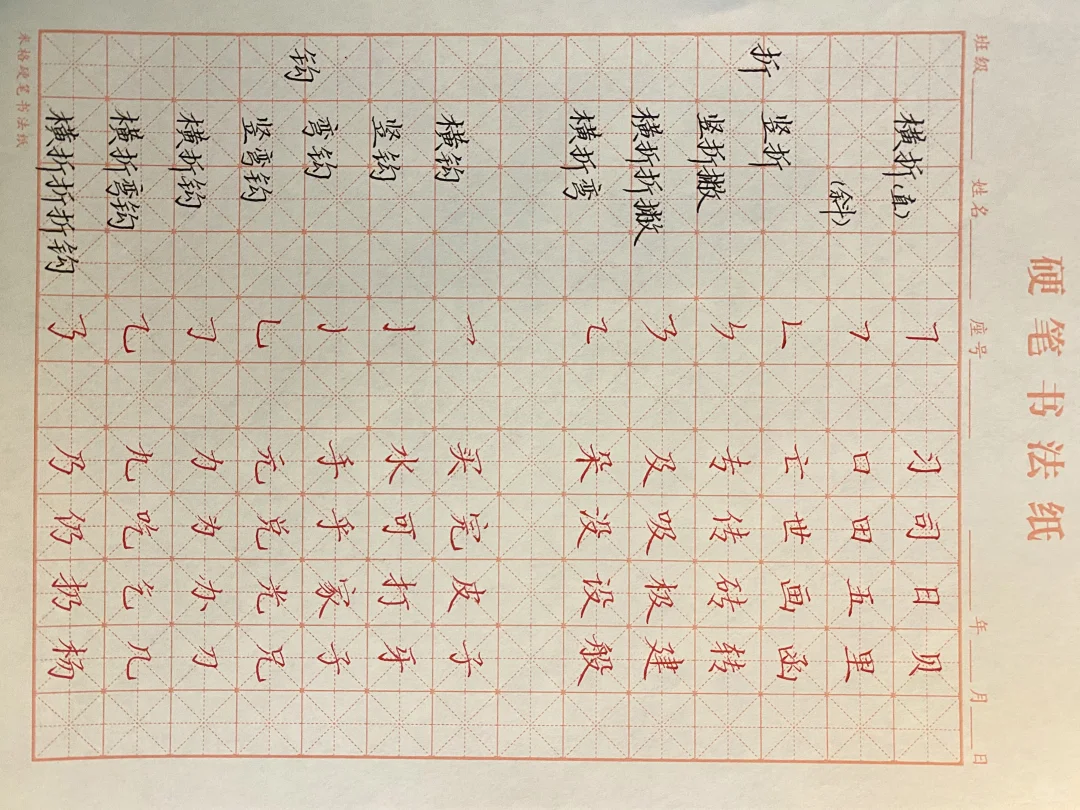 硬笔书法纸
班级 姓名 座号 年 月 日
横折(直) ㇕ 习 司 日 贝
(斜) ㇕ 口 田 五 里
折 竖折 ㇗ 亡 世 画 函
竖折撇 ㇞ 专 传 砖 转
横折折撇 ㇋ 及 吸 极 建
横折弯 ㇍ 朵 没 设 般
横钩 ㇖ 买 完 皮 子
竖钩 亅 水 可 打 牙
钩 弯钩 ㇁ 手 乎 家 子
竖弯钩 ㇟ 元 兑 光 兄
横折钩 ㇆ 力 为 办 刀
横折弯钩 ㇈ 九 吃 乞 几
横折折折钩 ㇡ 乃 仍 扔 杨
米格硬笔书法纸